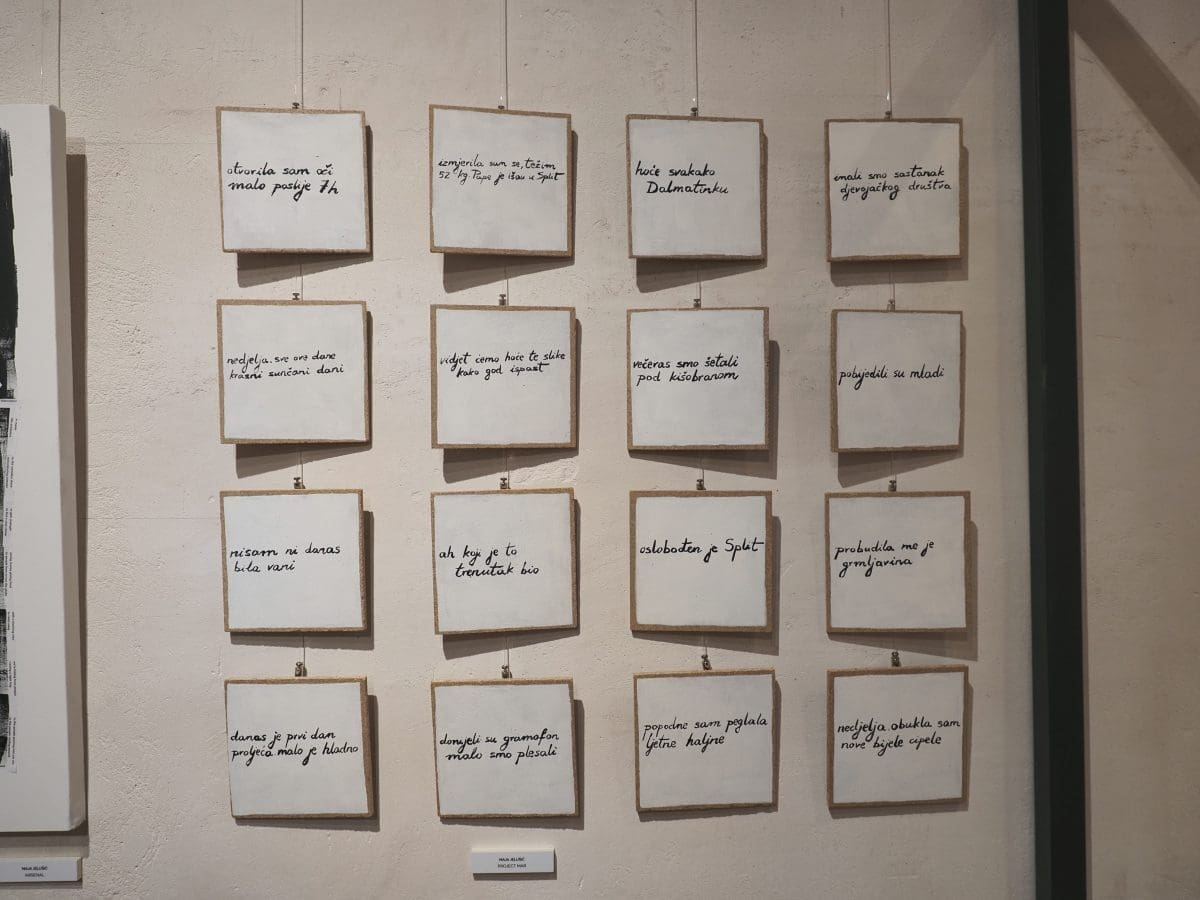 otvorila sam oči
malo poslije 7h
izmjerila sam se, težim
52 kg Papa je išao u Split
hoće svakako
Dalmatinku
imali smo sastanak
djevojačkog društva
nedjelja. sve ove dane
krasni sunčani dani
vidjet ćemo hoće te slike
kako god ispast
večeras smo šetali
pod kišobranom
pobijedili su mladi
nisam ni danas
bila vani
ah koji je to
trenutak bio
oslobođen je Split
probudila me je
grmljavina
danas je prvi dan
proljeća malo je hladno
donijeli su gramofon
malo smo plesali
popodne sam peglala
ljetne haljine
nedjelja. obukla sam
nove bijele cipele
MAJA JELUŠIĆ
ARSENAL
MAJA JELUŠIĆ
PROJECT MAR